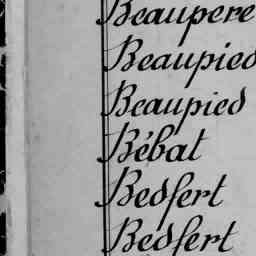 Beaupere
Beaupied
Beaupied
Bébat
Bedfert
Bedfert